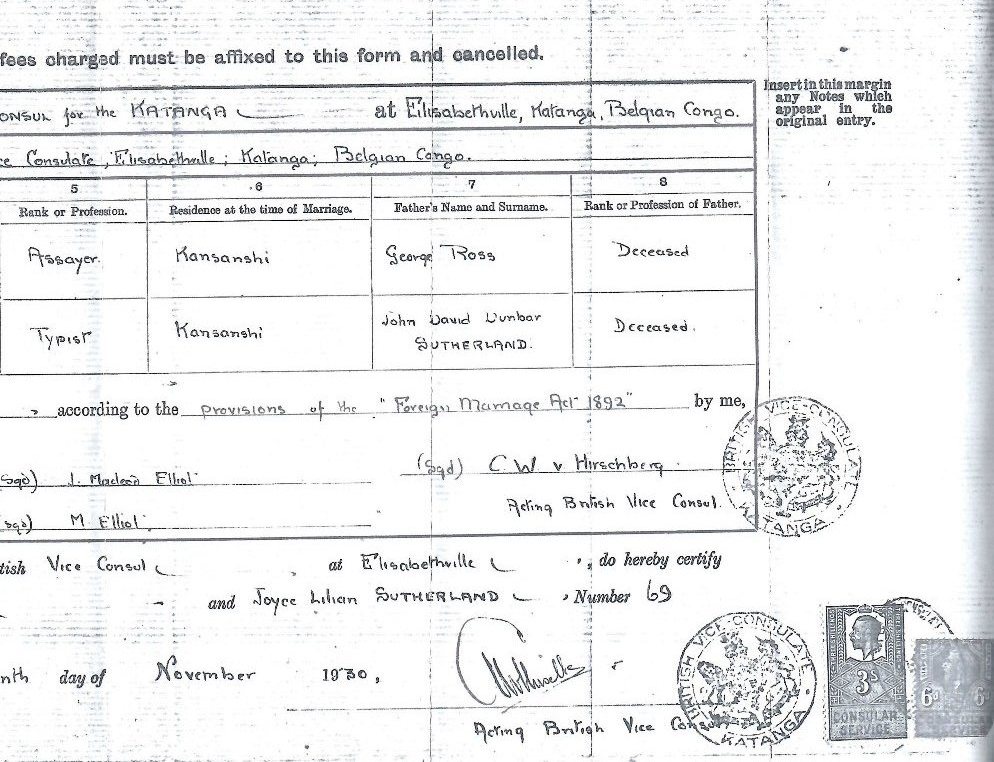 fees charged must be affixed to this form and cancelled.
Insert in this margin
any Notes which
appear in the
original entry.
onsul for the KATANGA at Elisabethville, Katanga, Belgian Congo.
ce Consulate, Elisabethville; Katanga; Belgian Congo.
5 6 7 8
Rank or Profession. Residence at the time of Marriage. Father's Name and Surname. Rank or Profession of Father.
Assayer. Kansanshi George Ross Deceased
Typist Kansanshi John David Dunbar SUTHERLAND. Deceased.
according to the provisions of the "Foreign Marriage Act 1892" by me,
(Sgd) C W v Hirschberg.
Sgd) J. Macleod Elliot
Acting British Vice Consul.
(Sgd) M Elliot
BRITISH VICE-CONSULATE
KATANGA
tish Vice Consul at Elisabethville, do hereby certify
and Joyce Lilian SUTHERLAND, Number 69
nth day of November 1930,
Acting British Vice Consul
BRITISH VICE-CONSULATE
KATANGA
3s
CONSULAR
SERVICE
6d 6d